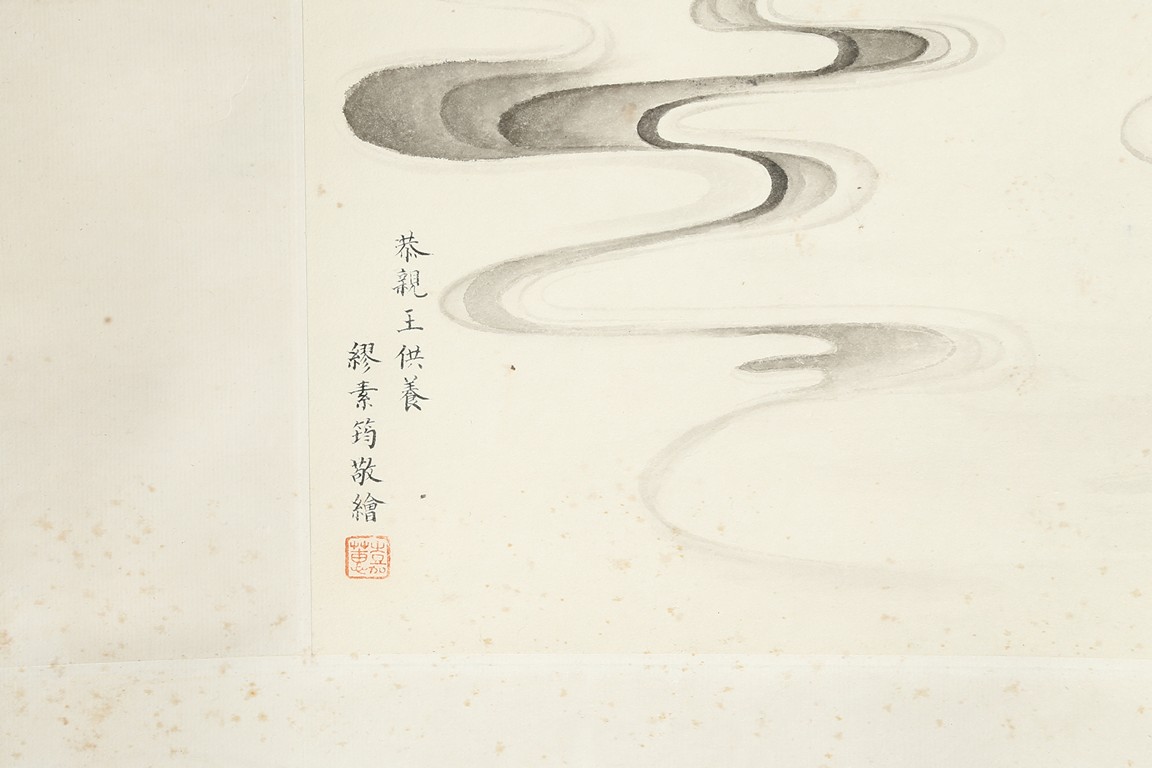 恭親王供養
繆素筠敬繪
嘉蕙